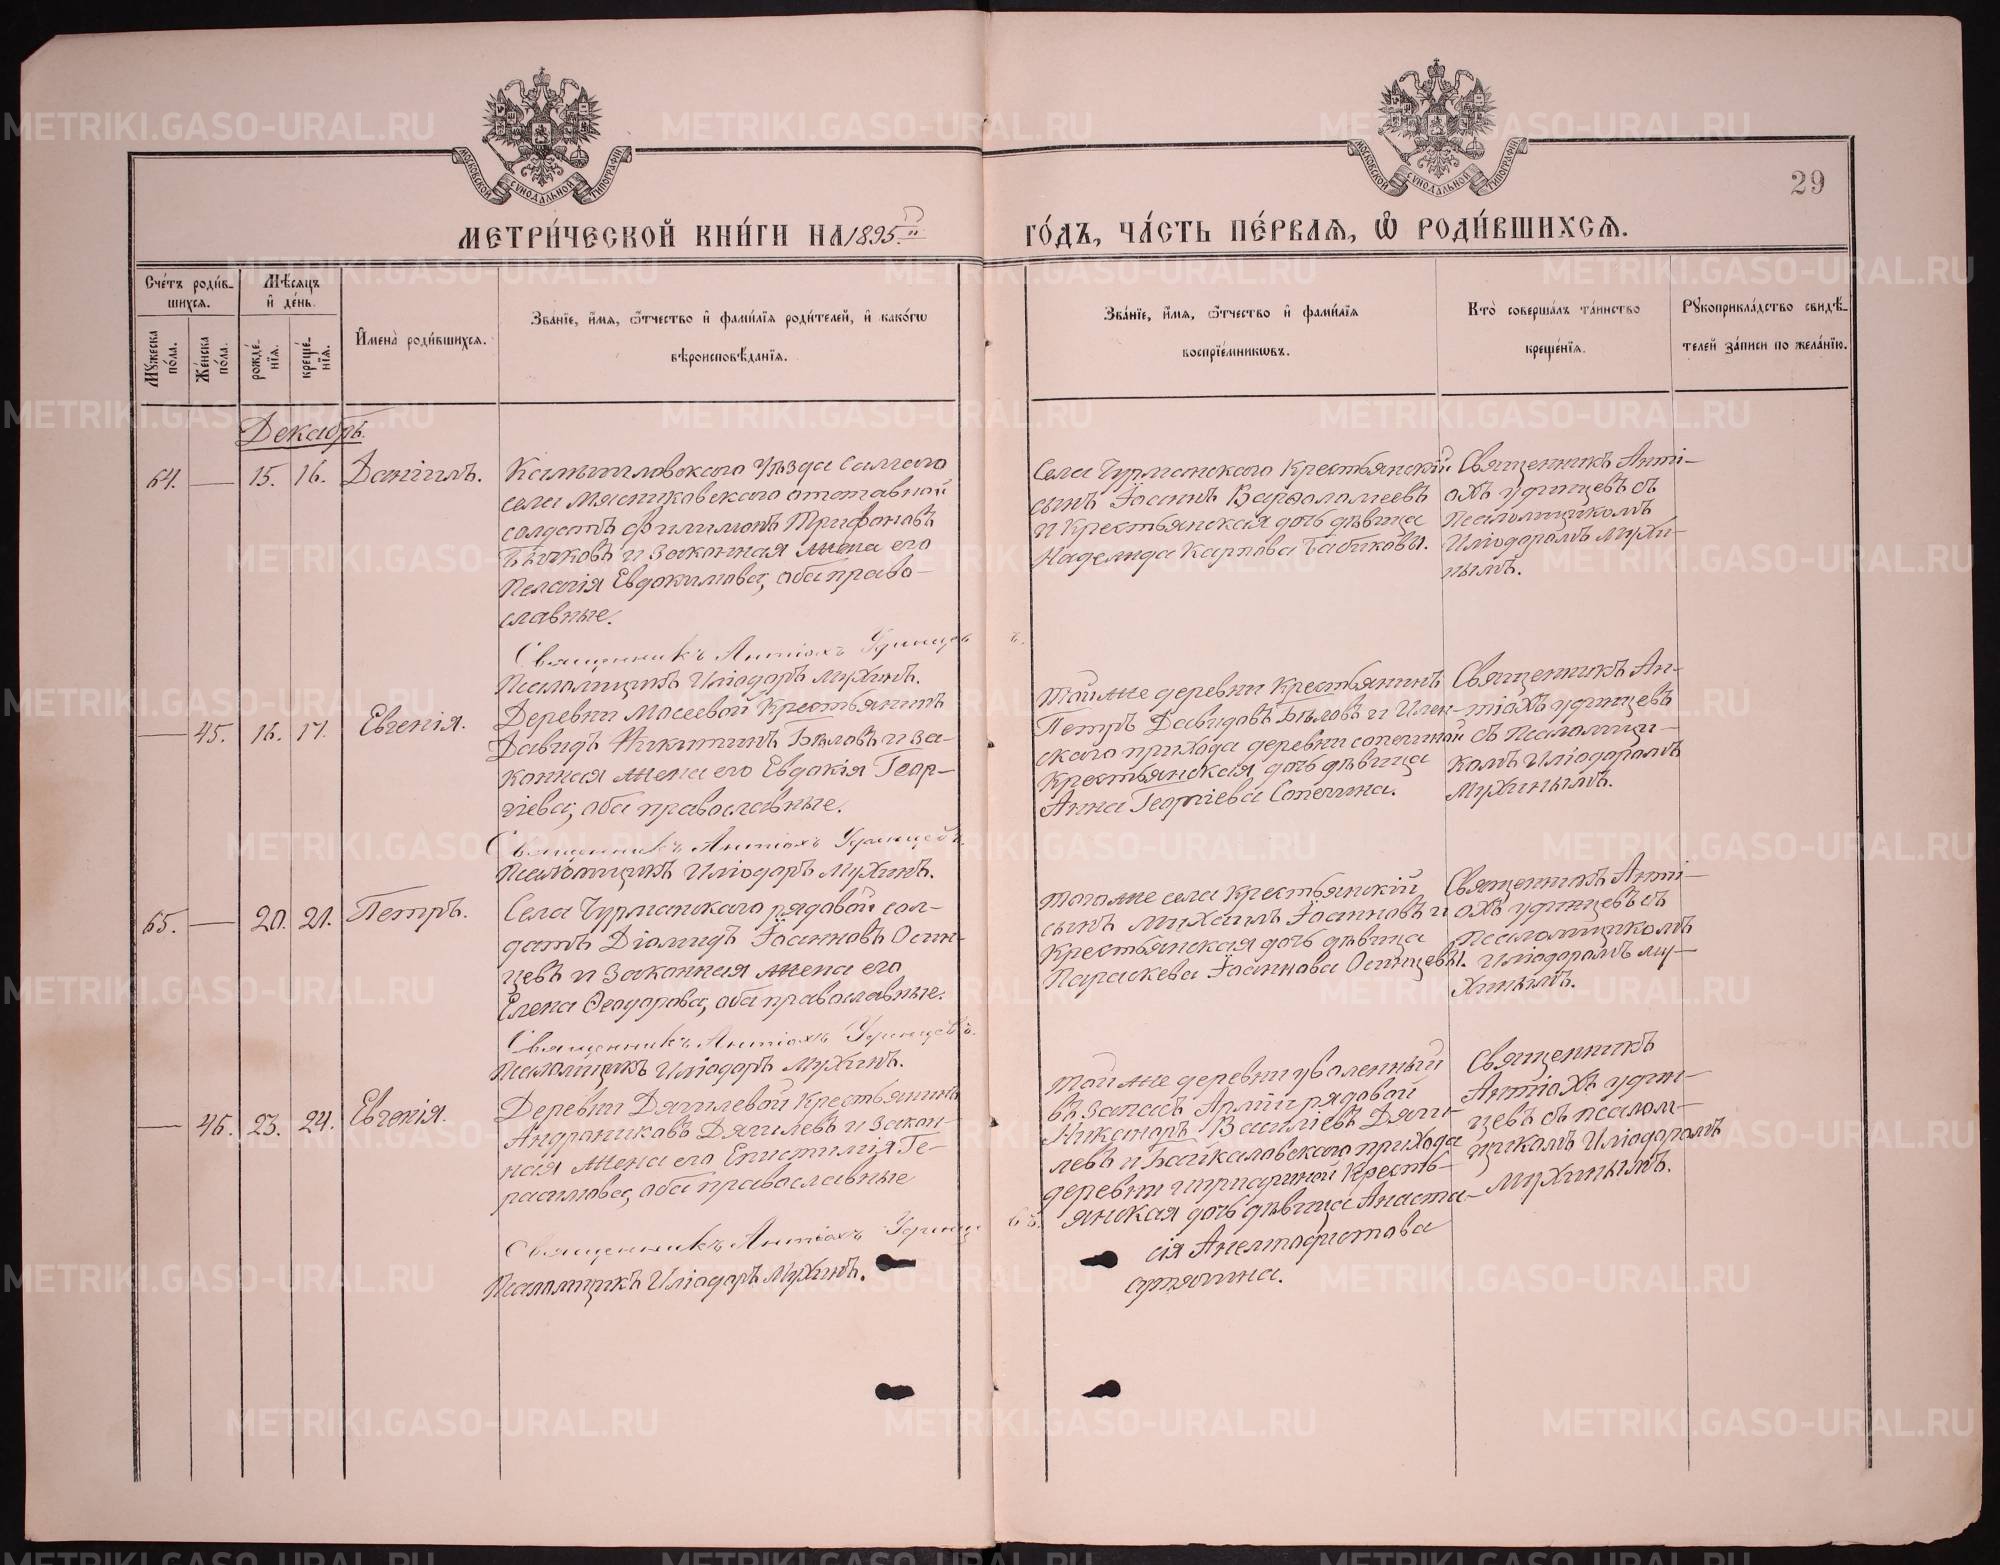 МОСКОВСКОЙ СѴНОДАЛЬНОЙ ТИПОГРАФІИ
МОСКОВСКОЙ СѴНОДАЛЬНОЙ ТИПОГРАФІИ
29
МЕТРИ́ЧЕСКОЙ КНИ́ГИ НА 1895 ГО́ДЪ, ЧА́СТЬ ПЕ́РВАѦ, Ѽ РОДИ́ВШИХСѦ.
Сче́тъ роди́в-
шихсѧ.
Мѣ́сѧцъ
и҆ де́нь.
Мꙋ́жеска по́ла.
Же́нска по́ла.
рожде́-нїѧ.
креще́-нїѧ.
И҆мена̀ роди́вшихсѧ.
Зва́нїе, и҆́мѧ, ѻ҆́тчество и҆ фами́лїѧ роди́телей, и҆ како́гѡ
вѣроисповѣ́данїѧ.
Зва́нїе, и҆́мѧ, ѻ҆́тчество и҆ фами́лїѧ
воспрїе́мникѡвъ.
Кто̀ соверша́лъ та́инство
креще́нїѧ.
Рꙋкоприкла́дство свидѣ́-
телей за́писи по жела́нїю.
Декабрь.
64. — 15. 16. Даніилъ.
Камышловскаго Уѣзда самаго
села Мясниковскаго отставной
солдатъ Филимонъ Трифоновъ
и Законная Жена его
Пелагія Евдокимова, оба право-
славные.
Священникъ Антіохъ Уфинцевъ.
Псаломщикъ Иліодоръ Мухинъ.
Села Чурманскаго Крестьянскій
сынъ Іоаннъ Варѳоломеевъ
и Крестьянская дочь дѣвица
Надежда Карпова Бабиковы.
Священникъ Анті-
охъ Уфинцевъ съ
Псаломщикомъ
Иліодоромъ Мухи-
нымъ.
— 45. 16. 17. Евгенія.
Деревни Мосеевой Крестьянинъ
Давидъ Никитинъ Бѣловъ и за-
конная Жена его Евдокія Геор-
гіева, оба православные.
Священникъ Антіохъ Уфинцевъ.
Псаломщикъ Иліодоръ Мухинъ.
Той же деревни Крестьянинъ
Петръ Давидовъ Бѣловъ и Илен-
скаго прихода деревни Сопегиной
Крестьянская дочь дѣвица
Анна Георгіева Сопегина.
Священникъ Ан-
тіохъ Уфинцевъ
съ Псаломщи-
комъ Иліодоромъ
Мухинымъ.
65. — 20. 21. Петръ.
Села Чурманскаго рядовой сол-
датъ Діомидъ Іоанновъ Осин-
цевъ и Законная Жена его
Елена Ѳеодорова, оба православные.
Священникъ Антіохъ Уфинцевъ.
Псаломщикъ Иліодоръ Мухинъ.
Того же села Крестьянскій
сынъ Михаилъ Іоанновъ и
Крестьянская дочь дѣвица
Параскева Іоаннова Осинцевы.
Священникъ Анті-
охъ Уфинцевъ съ
Псаломщикомъ
Иліодоромъ Му-
хинымъ.
— 46. 23. 24. Евгенія.
Деревни Дягилевой Крестьянинъ
Дягилевъ и Закон-
ная Жена его Епистимія Ге-
расимова, оба православные
Священникъ Антіохъ Уфинцевъ.
Псаломщикъ Иліодоръ Мухинъ.
Той же деревни уволенный
въ запасъ Арміи рядовой
Никаноръ Василіевъ Дяги-
левъ и Байкаловскаго прихода
деревни Крестья-
янская дочь дѣвица Анаста-
сія
Священникъ
Антіохъ Уфин-
цевъ съ псалом-
щикомъ Иліодоромъ
Мухинымъ.
METRIKI.GASO-URAL.RU